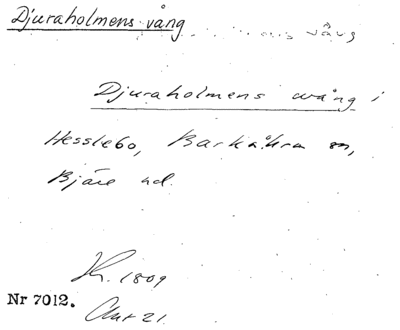 Djuraholmens vång
Djuraholmens wång i
Hesslebo, Barkåkra sn,
Bjäre hd.
K. 1809
Nr 7012. Akt 21